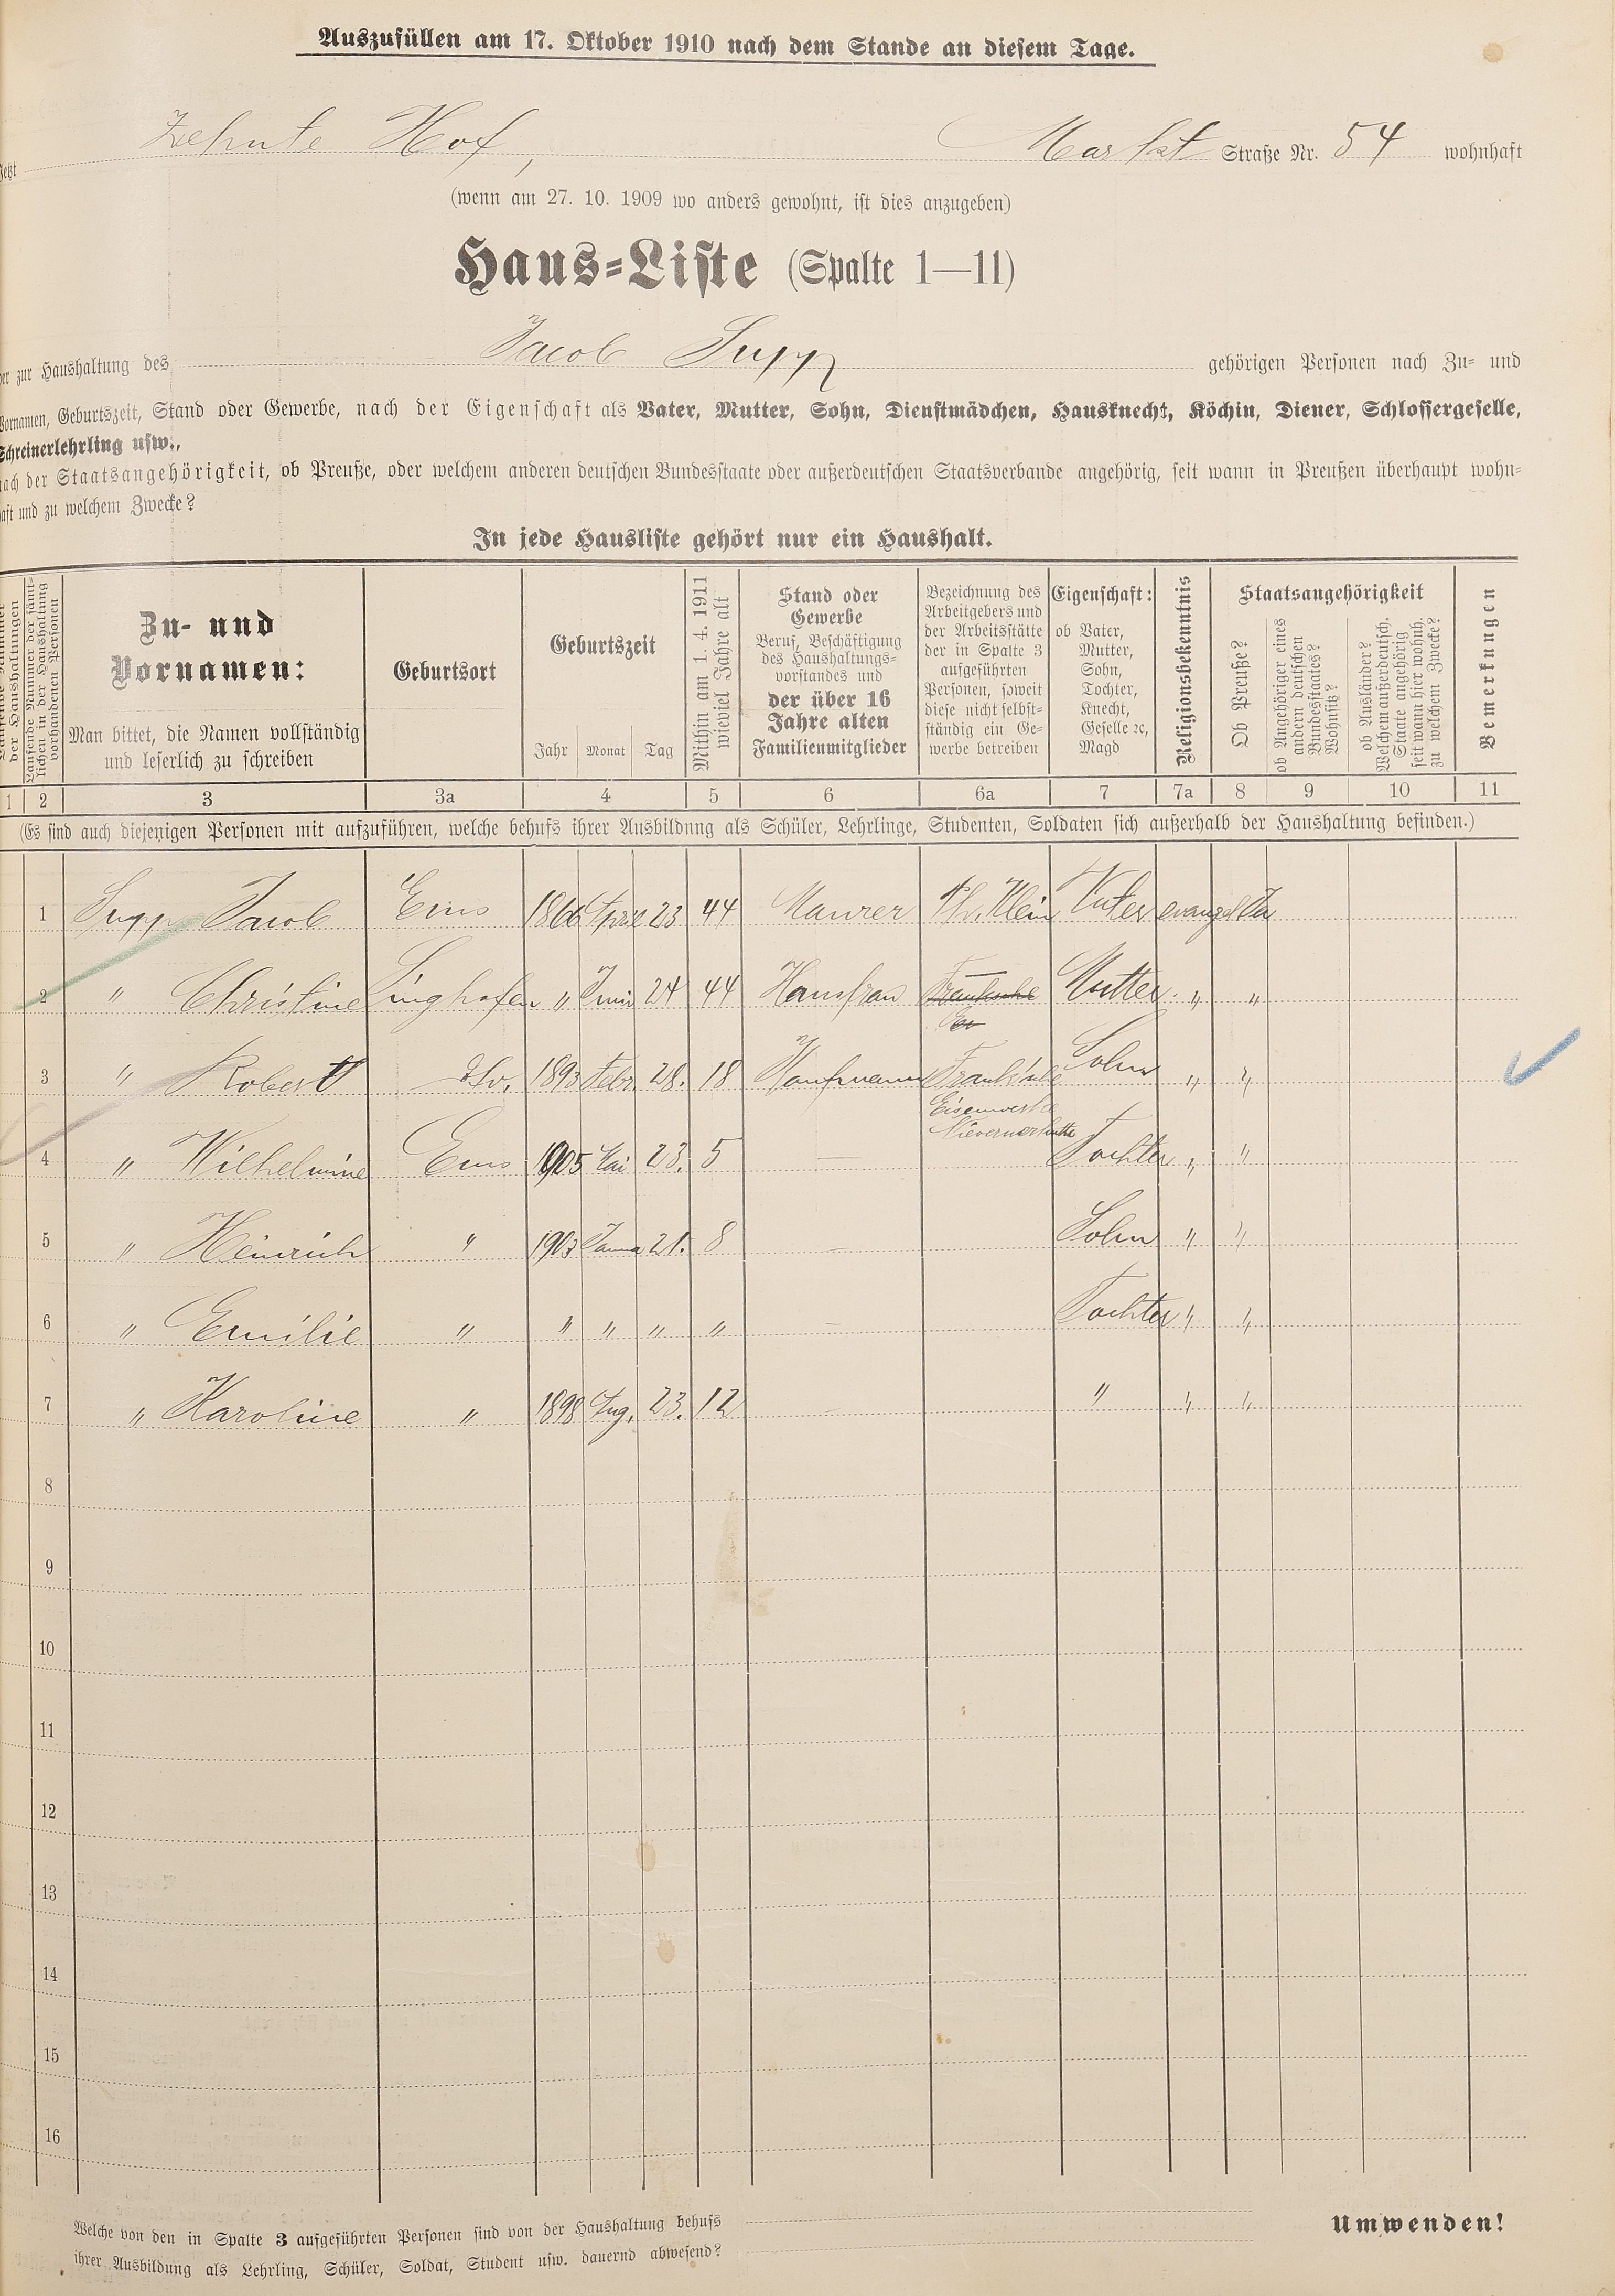 Auszufüllen am 17. Oktober 1910 nach dem Stande an diesem Tage.
Jetzt Zehnte Hof, Markt Straße Nr. 54 wohnhaft
(wenn am 27. 10. 1909 wo anders gewohnt, ist dies anzugeben)
Haus-Liste (Spalte 1—11)
der zur Haushaltung des Jacob Supp gehörigen Personen nach Zu- und
Vornamen, Geburtszeit, Stand oder Gewerbe, nach der Eigenschaft als Vater, Mutter, Sohn, Dienstmädchen, Hausknecht, Köchin, Diener, Schlossergeselle,
Schreinerlehrling usw.,
nach der Staatsangehörigkeit, ob Preuße, oder welchem anderen deutschen Bundesstaate oder außerdeutschen Staatsverbande angehörig, seit wann in Preußen überhaupt wohn-
haft und zu welchem Zwecke?
In jede Hausliste gehört nur ein Haushalt.
der Haushaltungen
Laufende Nummer der sämt-
lichen in der Haushaltung
vorhandenen Personen
Zu- und
Vornamen:
Man bittet, die Namen vollständig
und leserlich zu schreiben
Geburtsort
Geburtszeit
Jahr Monat Tag
Mithin am 1. 4. 1911
wieviel Jahre alt
Stand oder
Gewerbe
Beruf, Beschäftigung
des Haushaltungs-
vorstandes und
der über 16
Jahre alten
Familienmitglieder
Bezeichnung des
Arbeitgebers und
der Arbeitsstätte
der in Spalte 3
aufgeführten
Personen, soweit
diese nicht selbst-
ständig ein Ge-
werbe betreiben
Eigenschaft:
ob Vater,
Mutter,
Sohn,
Tochter,
Knecht,
Geselle ꝛc,
Magd
Religionsbekenntnis
Staatsangehörigkeit
Ob Preuße?
ob Angehöriger eines
andern deutschen
Bundesstaates?
Wohnsitz?
ob Ausländer?
Welchem außerdeutsch.
Staate angehörig
seit wann hier wohnh.
zu welchem Zwecke?
Bemerkungen
1 2 3 3a 4 5 6 6a 7 7a 8 9 10 11
(Es sind auch diejenigen Personen mit aufzuführen, welche behufs ihrer Ausbildung als Schüler, Lehrlinge, Studenten, Soldaten sich außerhalb der Haushaltung befinden.)
1 Supp Jacob Ems 1866 April 23 44 Maurer Ph. Klein Vater evangel Ja
2 " Christine Singhofen " Juni 24 44 Hausfrau Mutter " "
3 " Robert do. 1893 Febr. 28. 18 Kaufmann Frank'sche Sohn " "
Eisenwerke
Nievernerhütte
4 " Wilhelmine Ems 1905 Mai 23. 5 — Tochter " "
5 " Heinrich " 1903 Janua 21. 8 — Sohn " "
6 " Emilie " " " " " — Tochter " "
7 " Karoline " 1898 Aug. 23. 12 — " " "
8
9
10
11
12
13
14
15
16
Welche von den in Spalte 3 aufgeführten Personen sind von der Haushaltung behufs
ihrer Ausbildung als Lehrling, Schüler, Soldat, Student usw. dauernd abwesend?
Umwenden!